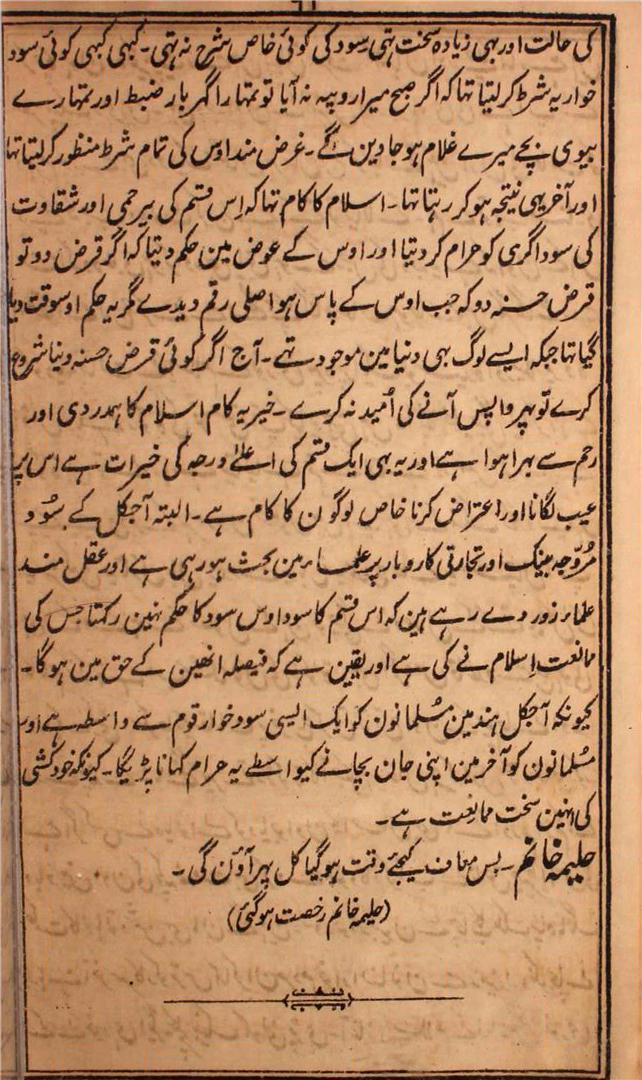 کی حالت اور بہی زیادہ سخت تہی سود کی کوئی خاص شرح نہ تہی۔ کبہی کبہی کوئی سود
خوار یہ شرط کر لیتا تہا کہ اگر صبح میرا روپیہ نہ آیا تو تمہارا گہر بار ضبط اور تمہارے
بیوی بچے میرے غلام ہو جاوین گے۔ غرض مند اوس کی تمام شرط منظور کر لیتا تہا
اور آخر یہی نتیجہ ہو کر رہتا تہا۔ اسلام کا کام تہا کہ اِس قسم کی بیرحمی اور شقاوت
کی سوداگری کو حرام کر دیتا اور اوس کے عوض مین حکم دیتا کہ اگر قرض دو تو
قرض حسنہ دو کہ جب اوس کے پاس ہو اصلی رقم دیدے مگر یہ حکم اوسوقت دیا
گیا تہا جبکہ ایسے لوگ بہی دنیا مین موجود تہے۔ آج اگر کوئی قرض حسنہ دینا شروع
کرے تو پہر واپس آنے کی اُمید نہ کرے۔ خیر یہ کام اسلام کا ہمدردی اور
رحم سے بہرا ہوا ہے اور یہ بہی ایک قسم کی اعلےٰ درجہ کی خیرات ہے اس پر
عیب لگانا اور اعتراض کرنا خاص لوگون کا کام ہے۔ البتہ آجکل کے سُود
مُروّجہ بینک اور تجارتی کاروبار پر علماء مین بحث ہو رہی ہے اور عقل مند
علماء زور دے رہے ہین کہ اس قسم کا سود اوس سود کا حکم نہین رکہتا جس کی
ممانعت اِسلام نے کی ہے اور یقین ہے کہ فیصلہ انھین کے حق مین ہو گا۔
کیونکہ آجکل ہند مین مسُلمانون کو ایک ایسی سود خوار قوم سے واسطہ ہے اور
مسُلمانون کو آخر مین اپنی جان بچانے کیواسطے یہ حرام کہانا پڑیگا۔ کیونکہ خودکشی
کی انہین سخت ممانعت ہے۔
حلیمہ خانم۔ بس معاف کیجئے وقت ہو گیا کل پہر آؤن گی۔
(حلیمہ خانم رخصت ہو گئی)